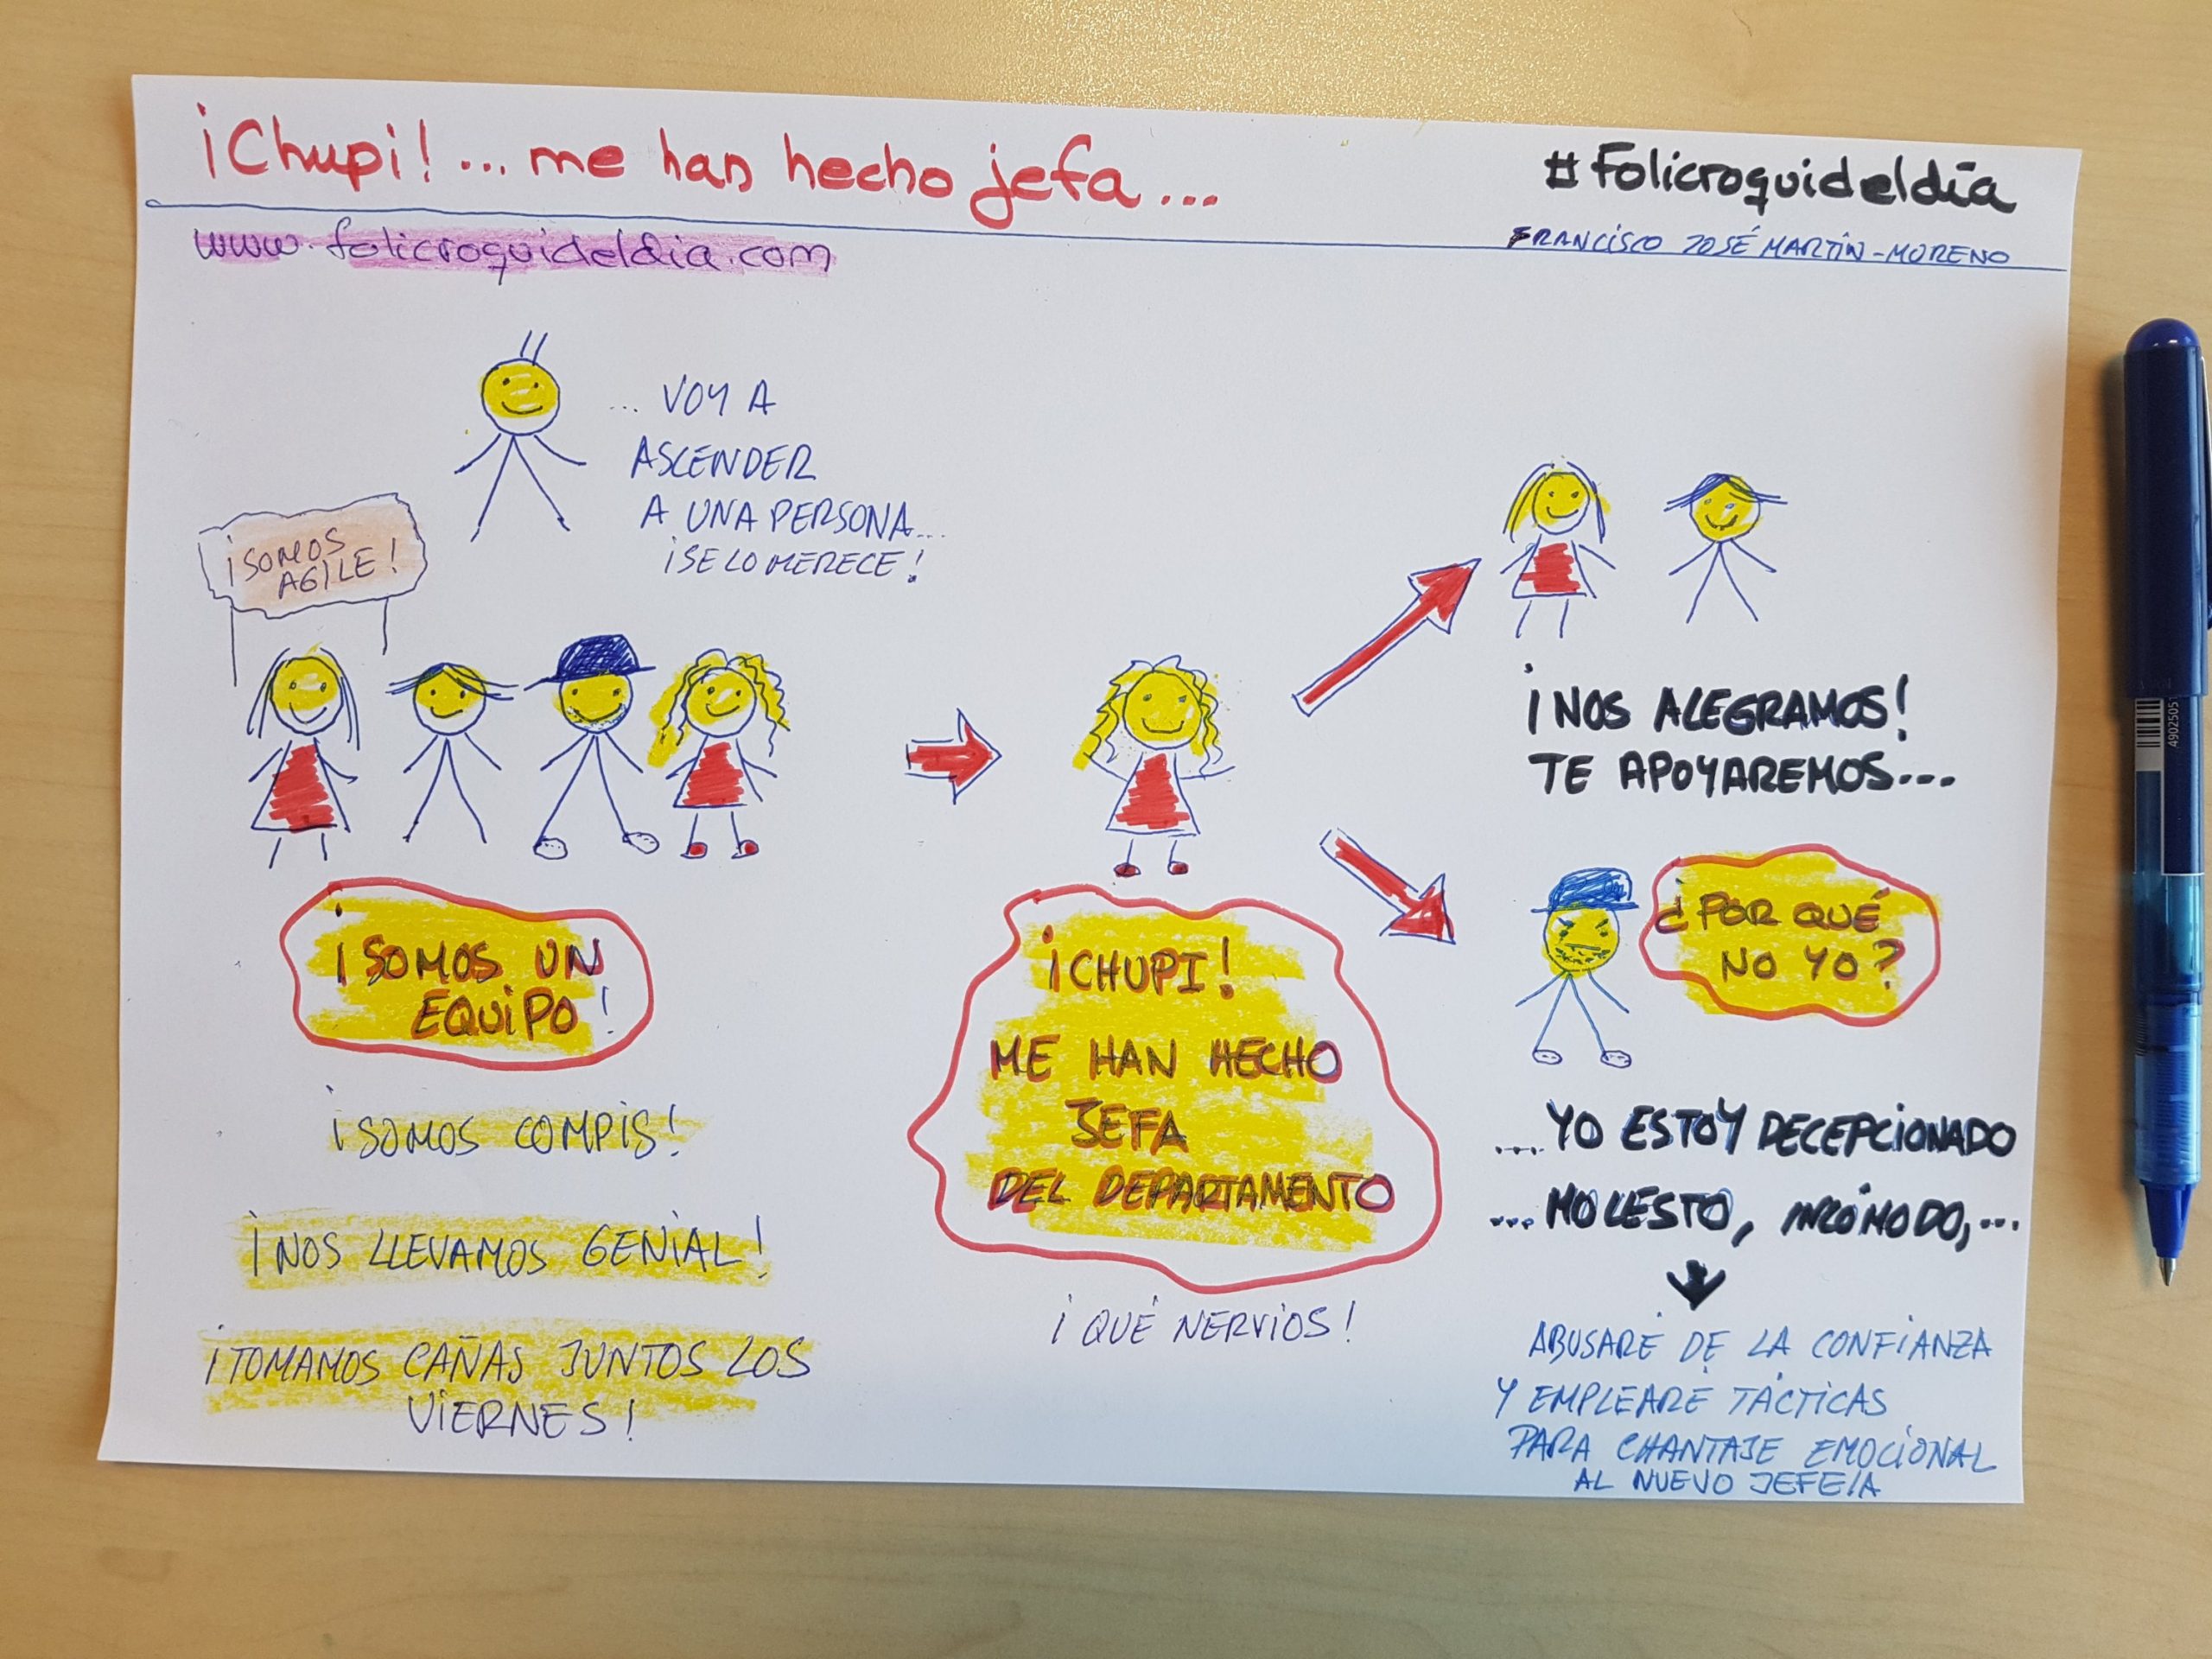 ¡Chupi!... me han hecho jefa...
#Folicroquideldía
www.folicroquideldia.com
FRANCISCO JOSÉ MARTÍN-MORENO
... VOY A
ASCENDER
A UNA PERSONA...
¡SE LO MERECE!
¡SOMOS
AGILE!
¡SOMOS UN
EQUIPO!
¡SOMOS COMPIS!
¡NOS LLEVAMOS GENIAL!
¡TOMAMOS CAÑAS JUNTOS LOS
VIERNES!
¡CHUPI!
ME HAN HECHO
JEFA
DEL DEPARTAMENTO
¡QUÉ NERVIOS!
¡NOS ALEGRAMOS!
TE APOYAREMOS...
¿POR QUÉ
NO YO?
... YO ESTOY DECEPCIONADO
... MOLESTO, INCÓMODO,...
ABUSARÉ DE LA CONFIANZA
Y EMPLEARÉ TÁCTICAS
PARA CHANTAJE EMOCIONAL
AL NUEVO JEFE/A
4902505